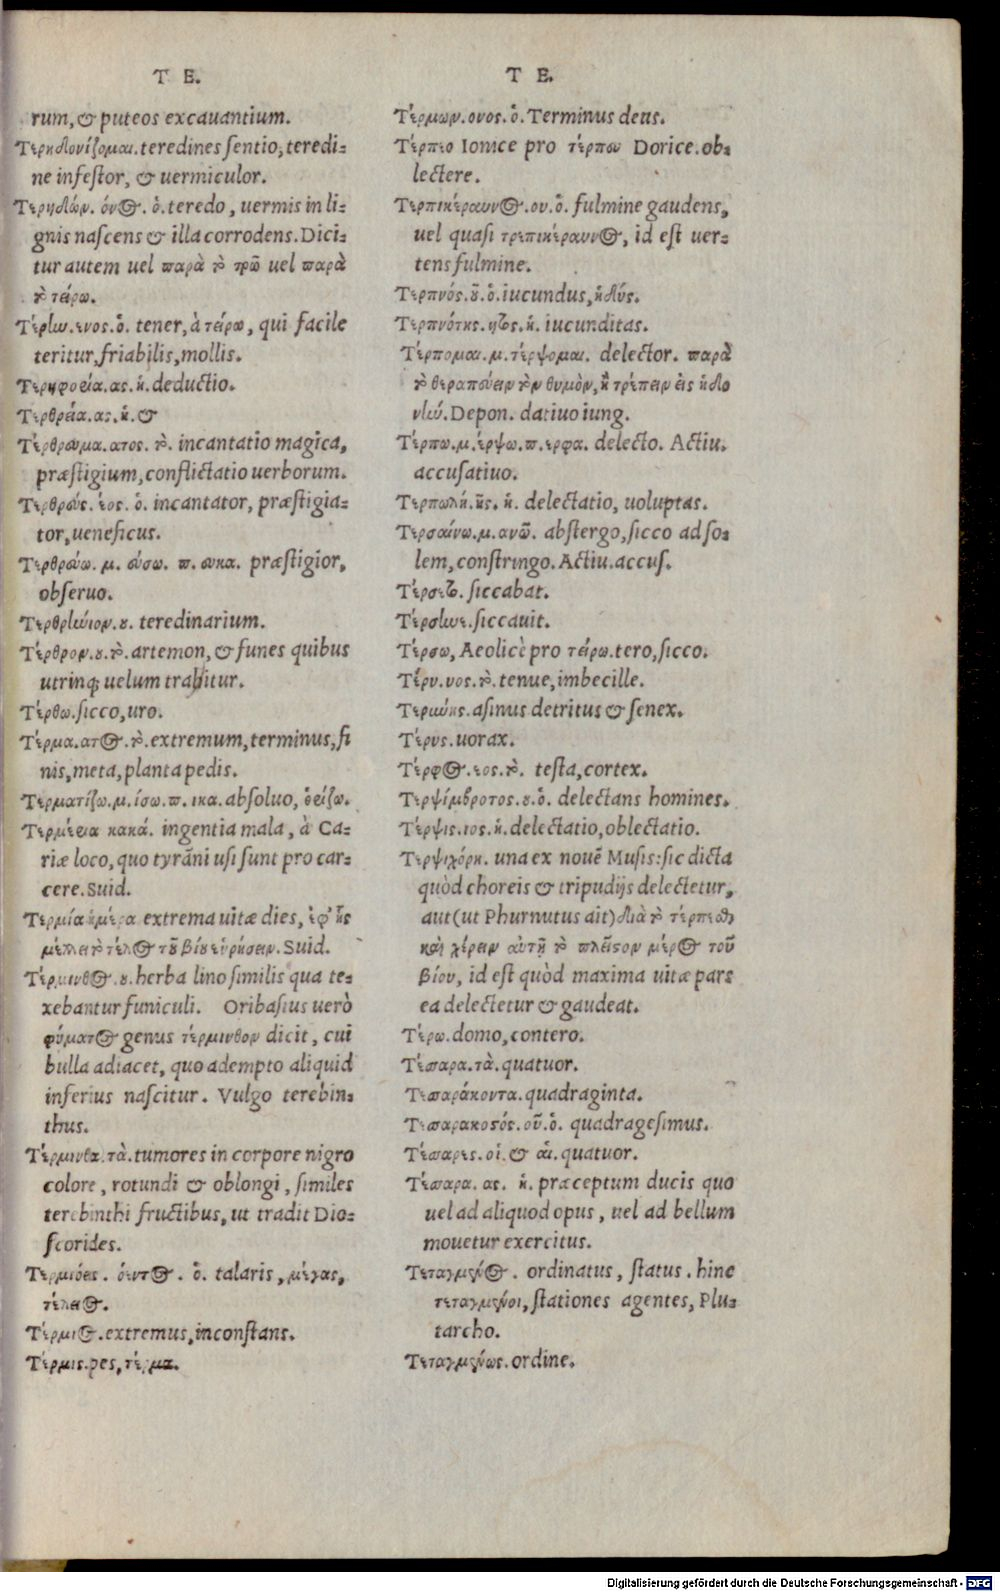 T E.
rum, & puteos excauantium.
Τερηδονίζομαι. teredines sentio, teredi-
ne infestor, & uermiculor.
Τερηδών. όνος. ὁ. teredo, uermis in li-
gnis nascens & illa corrodens. Dici-
tur autem uel παρὰ τὸ τρῶ uel παρὰ
τὸ τείρω.
Τέρην. ενος. ὁ. tener, à τείρω, qui facile
teritur, friabilis, mollis.
Τερηφοεία. ας. ἡ. deductio.
Τερθρεία. ας. ἡ. &
Τέρθρευμα. ατος. τὸ. incantatio magica,
præstigium, conflictatio uerborum.
Τερθρεύς. έος. ὁ. incantator, præstigia-
tor, ueneficus.
Τερθρεύω. μ. εύσω. π. ευκα. præstigior,
obseruo.
Τερθρηώιον. ου. teredinarium.
Τέρθρον. ου. τὸ. artemon, & funes quibus
utrinq; uelum trahitur.
Τέρθω. sicco, uro.
Τέρμα. ατος. τὸ. extremum, terminus, fi
nis, meta, planta pedis.
Τερματίζω. μ. ίσω. π. ικα. absoluo, ὁρίζω.
Τερμέρια κακά. ingentia mala, à Ca-
riæ loco, quo tyrãni usi sunt pro car-
cere. Suid.
Τερμία ἡμέρα extrema uitæ dies, ἐφ' ἧς
μέλλει τὸ τέλος τοῦ βίου εὑρήσειν. Suid.
Τέρμινθος. ου. herba lino similis qua te-
xebantur funiculi. Oribasius uerò
φύματος genus τέρμινθον dicit, cui
bulla adiacet, quo adempto aliquid
inferius nascitur. Vulgo terebin-
thus.
Τέρμινθα. τὰ. tumores in corpore nigro
colore, rotundi & oblongi, similes
terebinthi fructibus, ut tradit Dio-
scorides.
Τερμιόεις. όεντος. ὁ. talaris, μέγας,
τέλειος.
Τέρμιος. extremus, inconstans.
Τέρμις. pes, τέρμα.
T E.
Τέρμων. ονος. ὁ. Terminus deus.
Τέρπεο Ionice pro τέρπου Dorice. ob-
lectere.
Τερπικέραυνος. ου. ὁ. fulmine gaudens,
uel quasi τρεπικέραυνος, id est uer-
tens fulmine.
Τερπνός. οῦ. ὁ. iucundus, ἡδύς.
Τερπνότης. ητος. ἡ. iucunditas.
Τέρπομαι. μ. τέρψομαι. delector. παρὰ
τὸ θεραπεύειν τὸν θυμὸν, ἢ τρέπειν εἰς ἡδο
νήν. Depon. datiuo iung.
Τέρπω. μ. έρψω. π. ερφα. delecto. Actiu.
accusatiuo.
Τερπωλή. ῆς. ἡ. delectatio, uoluptas.
Τερσαίνω. μ. ανῶ. abstergo, sicco ad so-
lem, constringo. Actiu. accus.
Τέρσετο. siccabat.
Τέρσηνε. siccauit.
Τέρσω, Aeolicè pro τείρω. tero, sicco.
Τέρυ. υος. τὸ. tenue, imbecille.
Τερύνης. asinus detritus & senex.
Τέρυς. uorax.
Τέρφος. εος. τὸ. testa, cortex.
Τερψίμβροτος. ου. ὁ. delectans homines.
Τέρψις. ιος. ἡ. delectatio, oblectatio.
Τερψιχόρη. una ex nouẽ Musis: sic dicta
quòd choreis & tripudijs delectetur,
aut (ut Phurnutus ait) διὰ τὸ τέρπεσθαι
καὶ χαίρειν αὐτῇ τὸ πλεῖστον μέρος τοῦ
βίου, id est quòd maxima uitæ pars
ea delectetur & gaudeat.
Τέρω. domo, contero.
Τέσσαρα. τὰ. quatuor.
Τεσσαράκοντα. quadraginta.
Τεσσαρακοστός. οῦ. ὁ. quadragesimus.
Τέσσαρες. οἱ. & αἱ. quatuor.
Τέσσαρα. ας. ἡ. præceptum ducis quo
uel ad aliquod opus, uel ad bellum
mouetur exercitus.
Τεταγμένος. ordinatus, status. hinc
τεταγμένοι, stationes agentes, Plu-
tarcho.
Τεταγμένως. ordine.
Digitalisierung gefördert durch die Deutsche Forschungsgemeinschaft - DFG